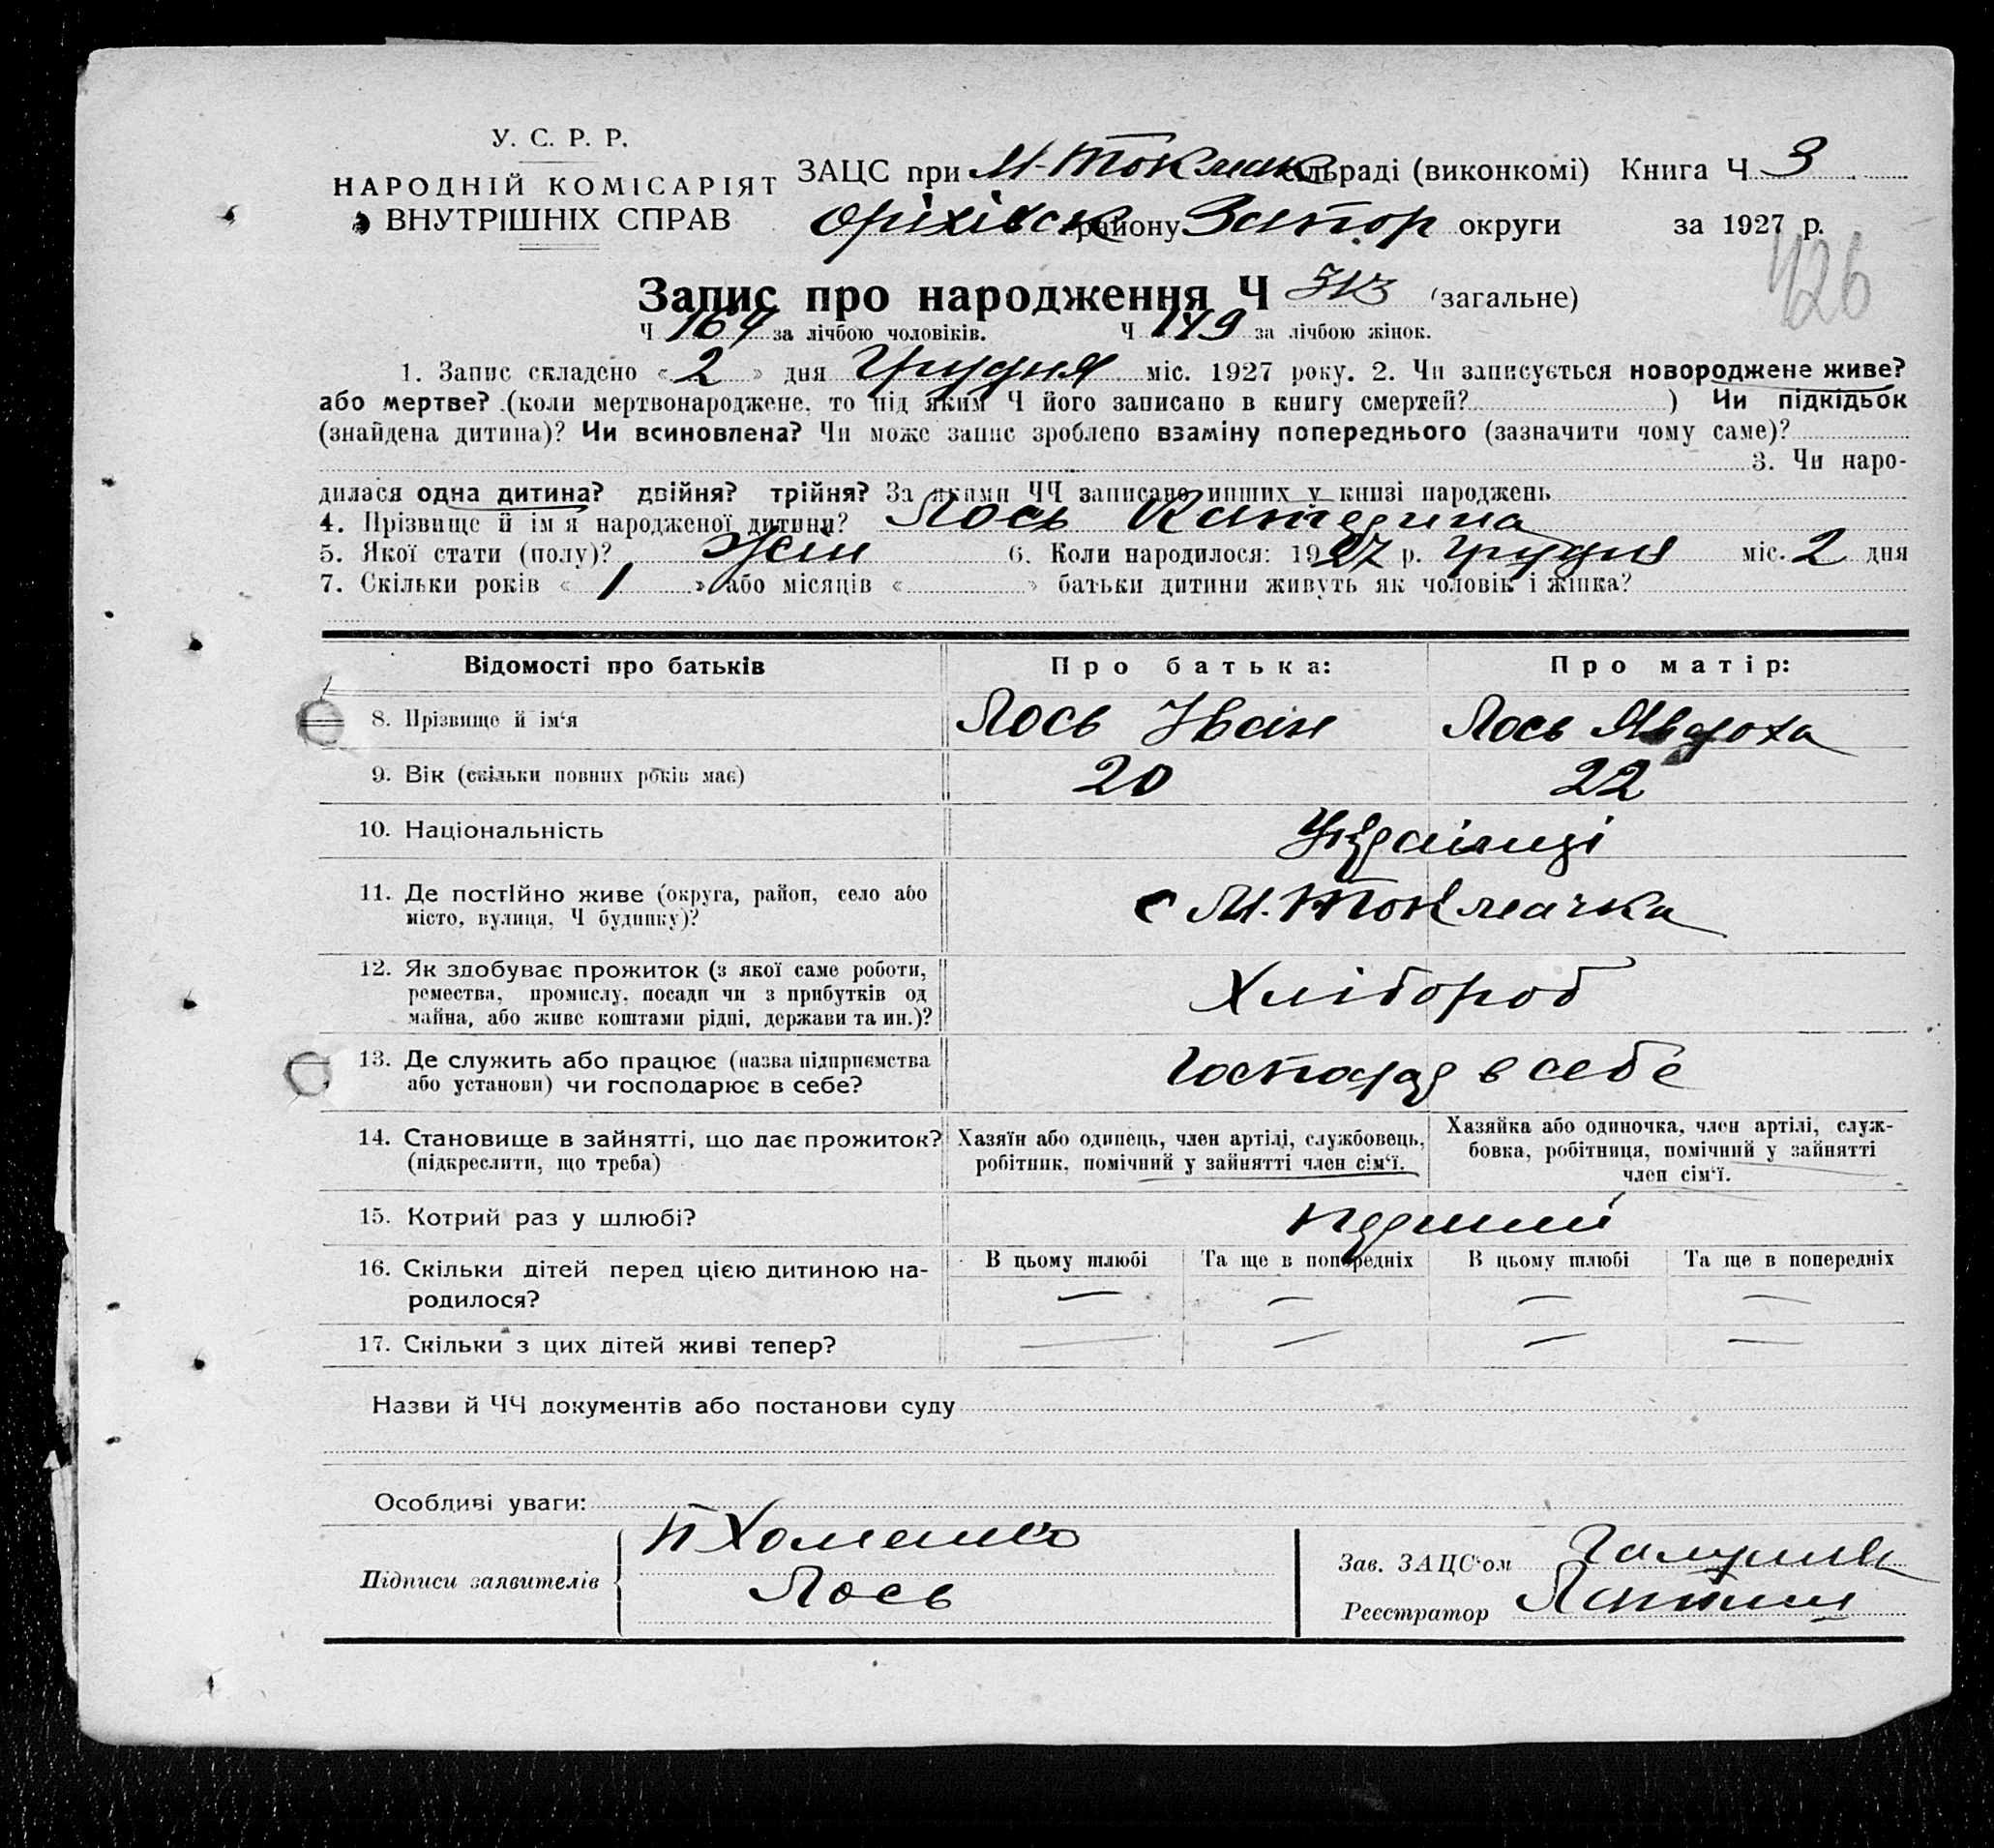 У. С. Р. Р.
НАРОДНІЙ КОМІСАРІЯТ
ВНУТРІШНІХ СПРАВ
ЗАЦС при М-Токмак сільраді (виконкомі) Книга Ч 3
Оріхівск району Запор округи за 1927 р.
426
Запис про народження Ч 313 (загальне)
Ч 164 за лічбою чоловіків. Ч 149 за лічбою жінок.
1. Запис складено « 2 » дня Грудня міс. 1927 року. 2. Чи записується новороджене живе?
або мертве? (коли мертвонароджене, то під яким Ч його записано в книгу смертей? ) Чи підкідьок
(знайдена дитина)? Чи всиновлена? Чи може запис зроблено взаміну попереднього (зазначити чому саме)?
3. Чи наро-
дилася одна дитина? двійня? трійня? За якими ЧЧ записано инших у книзі народжень
4. Прізвище й ім'я народженої дитини? Лось Катерина
5. Якої стати (полу)? Жін 6. Коли народилося: 1927 р. Грудня міс. 2 дня
7. Скільки років « 1 » або місяців « » батьки дитини живуть як чоловік і жінка?
Відомості про батьків Про батька: Про матір:
8. Прізвище й ім'я Лось Іван Лось Явдоха
9. Вік (скільки повних років має) 20 22
10. Національність Українці
11. Де постійно живе (округа, район, село або
місто, вулиця, Ч будинку)? с М. Токмачка
12. Як здобуває прожиток (з якої саме роботи,
ремества, промислу, посади чи з прибутків од
майна, або живе коштами рідні, держави та ин.)? Хлібороб
13. Де служить або працює (назва підприємства
або установи) чи господарює в себе? Господар в себе
14. Становище в зайнятті, що дає прожиток?
(підкреслити, що треба)
Хазяїн або одинець, член артілі, службовець,
робітник, помічний у зайнятті член сім'ї.
Хазяйка або одиночка, член артілі, служ-
бовка, робітниця, помічний у зайнятті
член сім'ї.
15. Котрий раз у шлюбі? перший
16. Скільки дітей перед цією дитиною на-
родилося?
В цьому шлюбі Та ще в попередніх В цьому шлюбі Та ще в попередніх
— — — —
17. Скільки з цих дітей живі тепер? — — — —
Назви й ЧЧ документів або постанови суду
Особливі уваги:
Підписи заявителів
П Хоменко
Лось
Зав. ЗАЦС'ом
Реєстратор